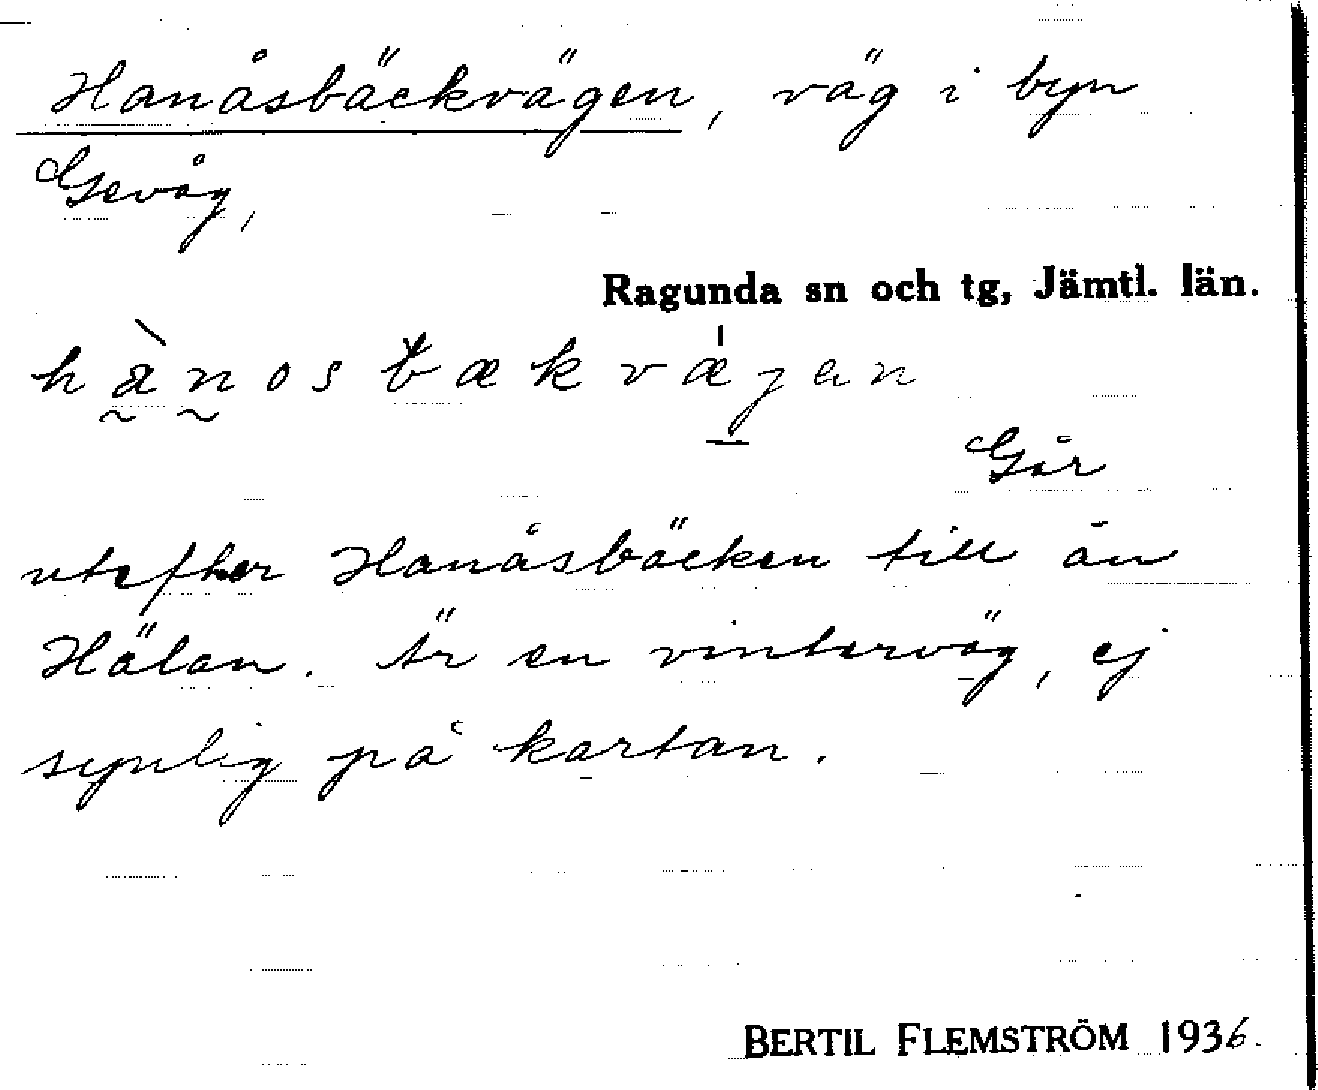 Hanåsbäckvägen, väg i byn
Gevåg,
Ragunda sn och tg, Jämtl. län.
hànosbækvæ̍gen
Går
utefter Hanåsbäcken till ån
Hälan. Är en vinterväg, ej
synlig på kartan.
BERTIL FLEMSTRÖM 1936.